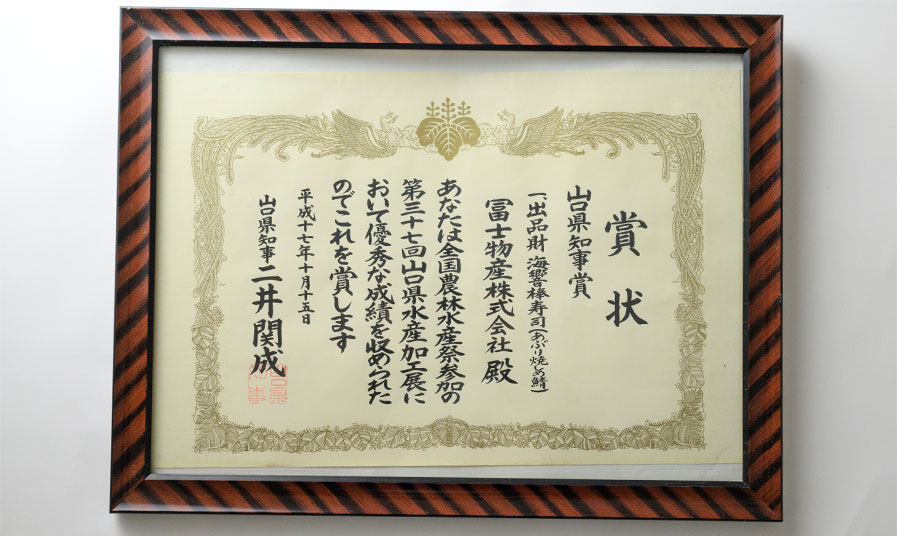 賞状
山口県知事賞
一、出品財 海響棒寿司(あぶり焼しめ鯖)
冨士物産株式会社殿
あなたは全国農林水産祭参加の
第三十七回山口県水産加工展に
おいて優秀な成績を収められた
のでこれを賞します
平成十七年十月十五日
山口県知事 二井関成
山口県
知事